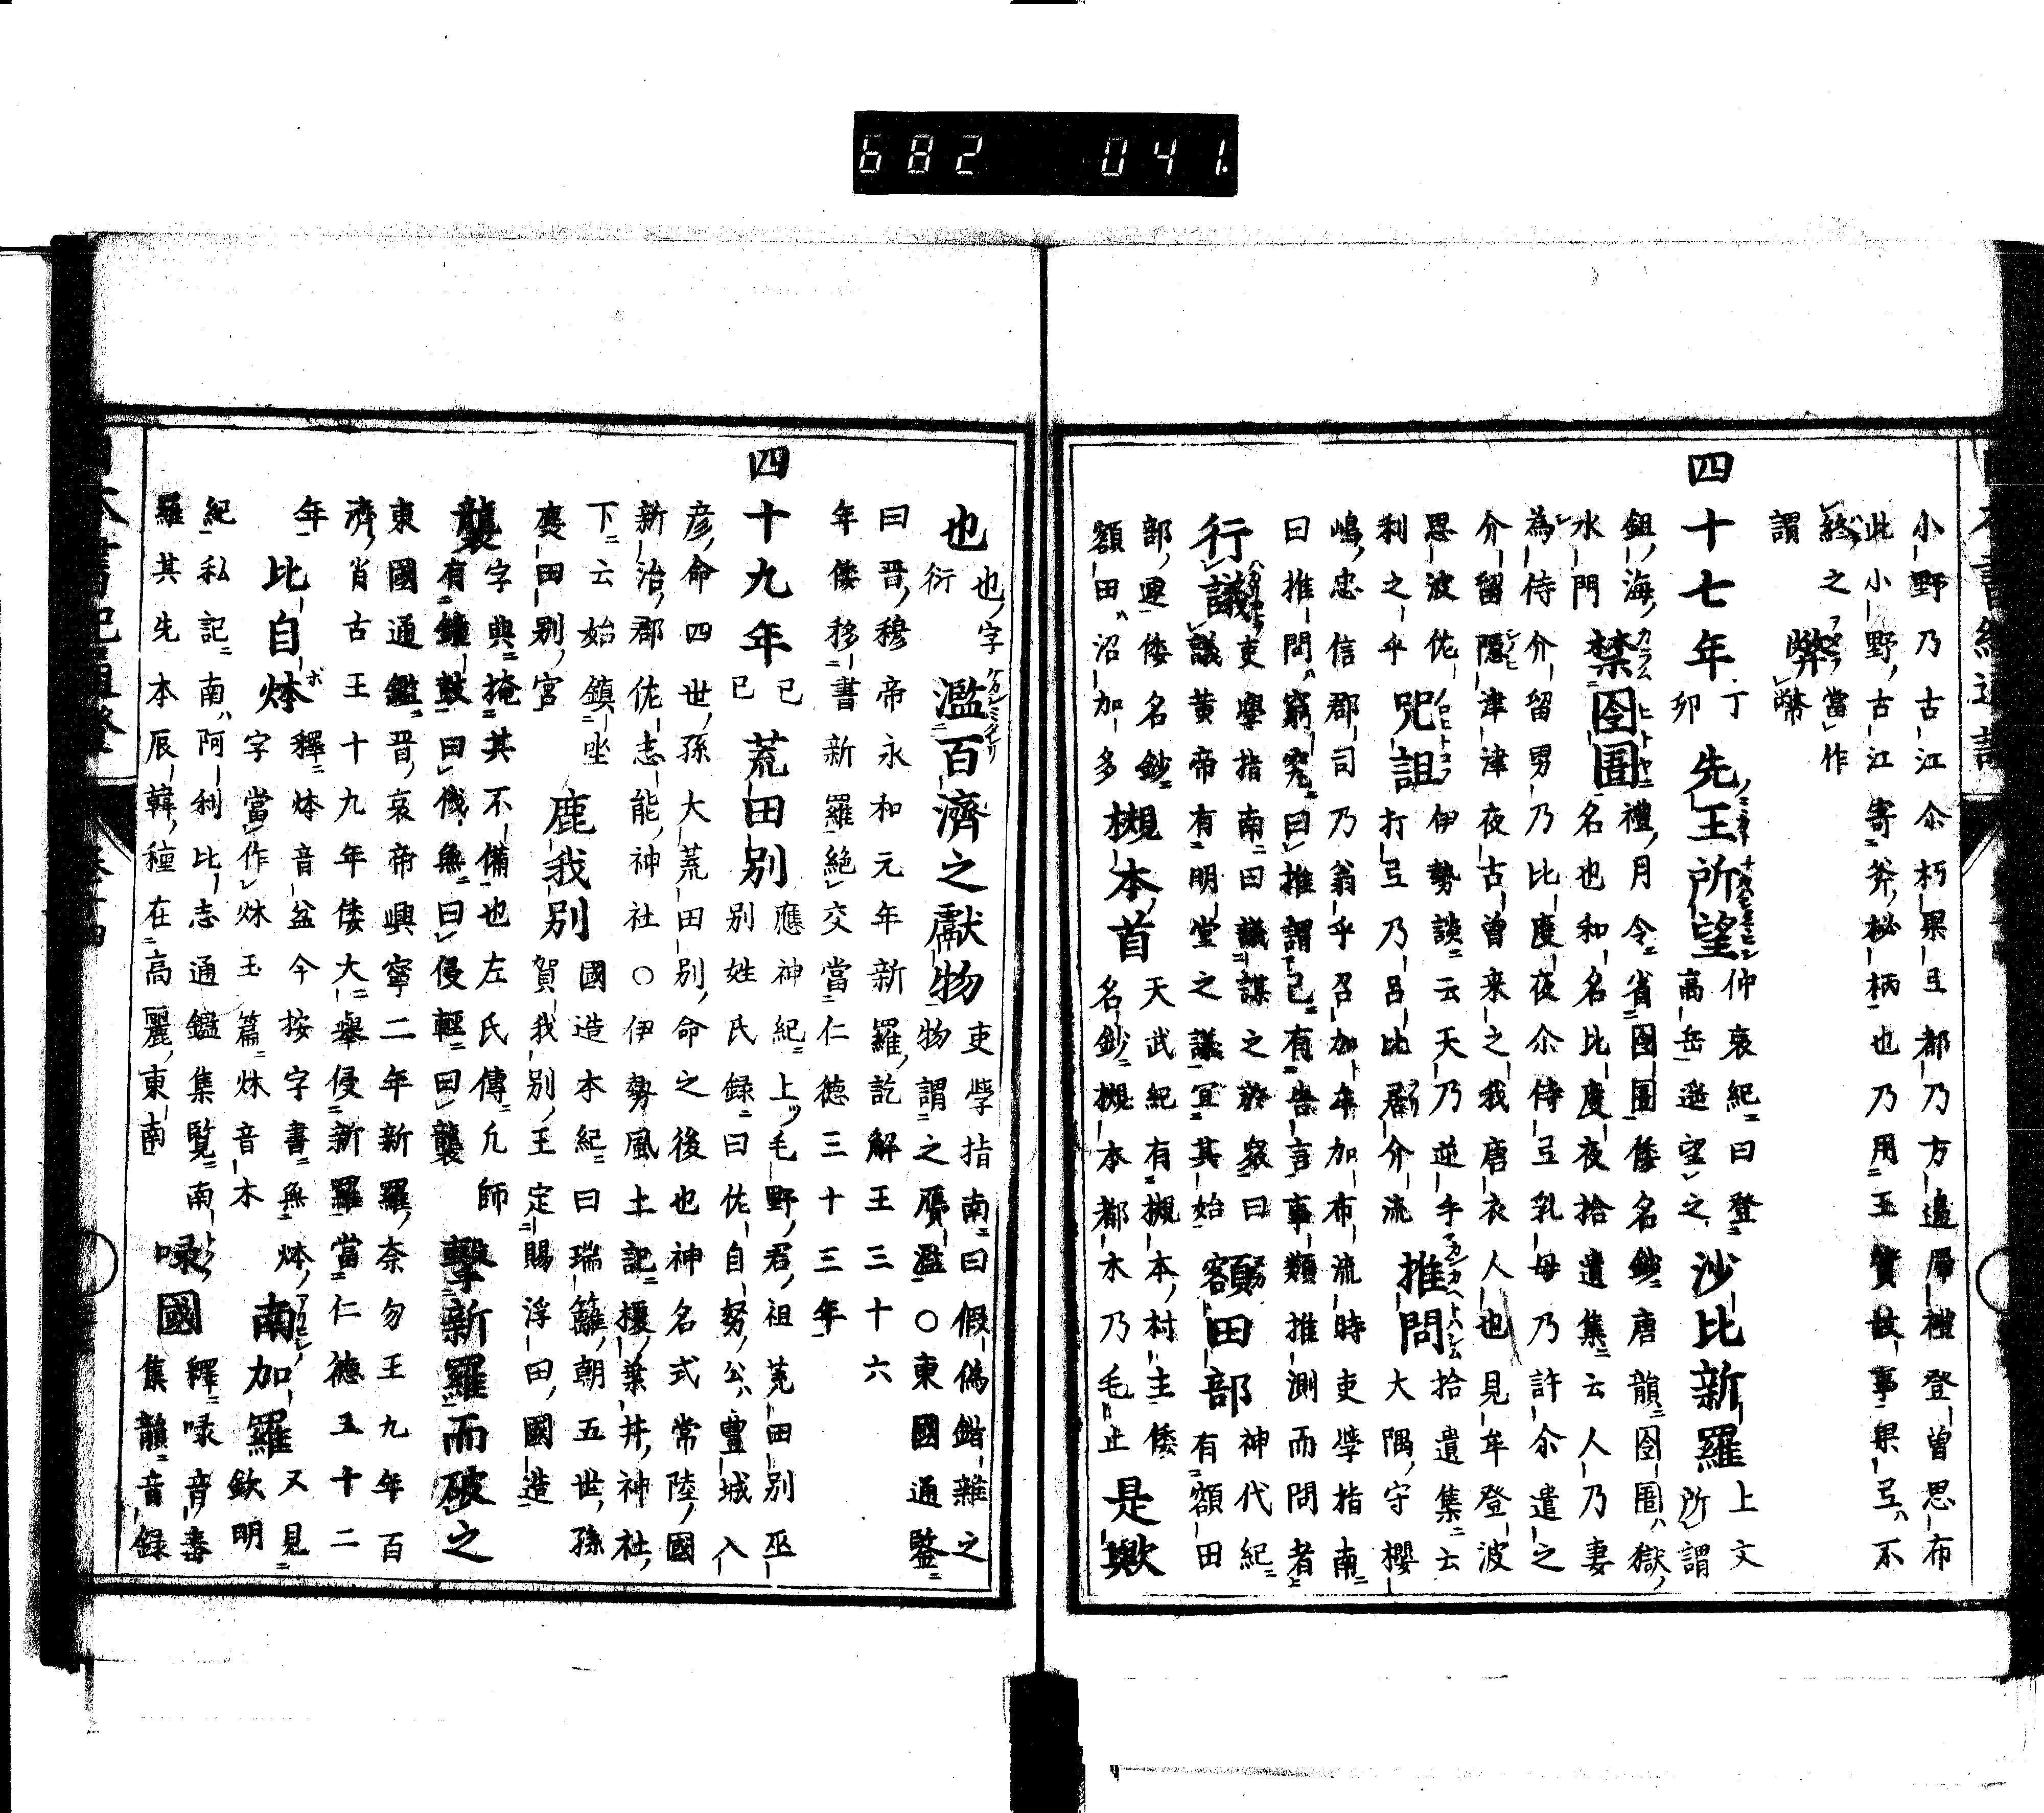 682 041.
小野乃古江尒朽果弖都乃方邊屬禮登曾思布
此小野古江寄斧柲柄也乃用玉實故事果弖不
終之
弊當作
幣
謂
四十七年丁卯先王所望仲哀紀曰登高岳遙望之沙比新羅上文所謂
鉏海
禁囹圄禮月令省囹圄倭名鈔唐韻囹圄獄
水門
名也和名比度夜拾遺集云人乃妻
為侍介留男乃比度夜尒侍弖乳母乃許尒遣之
介留隱津津夜古曾来之我唐衣人也見牟登波
思波佐
咒詛伊勢談云天乃逆手乎打弖乃呂比
推問拾遺集云大隅守櫻
利之乎
郡介流
嶋忠信郡司乃翁乎召加牟加布流時吏學指南
曰推問窮究曰推謂已有告言事類推測而問者
行議吏學指南田議謀之於衆曰議黄帝有明堂之議冝其始
額田部神代紀有額田
部連倭名鈔額田沼加多
槻本首天武紀有槻本村主倭名鈔槻本都木乃毛止
是歟
也也字衍
濫百濟之獻物吏學指南曰假偽錯雜之物謂之贋濫○東國通鑒
曰晋穆帝永和元年新羅訖解王三十六
年倭移書新羅絶交當仁德三十三年
四十九年己巳荒田別應神紀上毛野君祖荒田別巫別姓氏録曰佐自努公豐城入
彦命四世孫大荒田別命之後也神名式常陸國
新治郡佐志能神社○伊勢風土記榎葉井神社
下云始鎮坐
鹿我別國造本紀曰瑞籬朝五世孫賀我別王定賜浮田國造
廣田別宮
襲字典掩其不備也左氏傳凢師有鐘鼓曰伐無曰侵輕曰襲
擊新羅而破之
東國通鑑晋哀帝興寧二年新羅奈勿王九年百
濟肖古王十九年倭大舉侵新羅當仁德五十二
年
比自㶱釋㶱音盆今按字書無㶱字當作炑玉篇炑音木
南加羅又見欽明
紀私記南阿利比志通鑑集覧南
㖨國釋㖨音毒集韻音録
羅其先本辰韓種在高麗東南